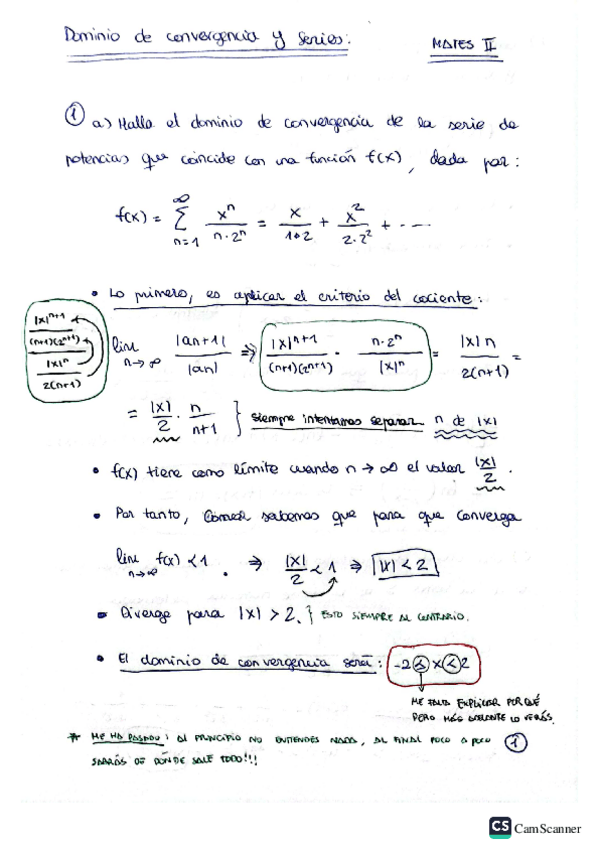 Dominio de convergencia y series:
MATES II
① a) Halla el dominio de convergencia de la serie de
potencias que coincide con una función f(x), dada por:
f(x) = ∞ Σ n=1 xⁿ / n·2ⁿ = x / 1·2 + x² / 2·2² + ----
• Lo primero, es aplicar el criterio del cociente:
|x|ⁿ⁺¹ / (n+1)(2ⁿ⁺¹)
|x|ⁿ / 2(n+1)
lim n→∞ |an+1| / |an| ⇒ |x|ⁿ⁺¹ / (n+1)(2ⁿ⁺¹) · n·2ⁿ / |x|ⁿ = |x| n / 2(n+1) =
= |x| / 2 · n / n+1 } siempre intentamos separar n de |x|
• f(x) tiene como límite cuando n → ∞ el valor |x| / 2 .
• Por tanto, sabemos que para que converga
lim n→∞ f(x) < 1 . ⇒ |x| / 2 < 1 ⇒ |x| < 2
• Diverge para |x| > 2. } ESTO SIEMPRE AL CONTRARIO.
• El dominio de convergencia será: -2 ≤ x < 2
ME FALTA EXPLICAR POR QUÉ
PERO MÁS ADELANTE LO VERÁS.
* ME HA PASADO: AL PRINCIPIO NO ENTIENDES NADA, AL FINAL POCO A POCO ①
SABRÁS DE DÓNDE SALE TODO!!!
CS CamScanner